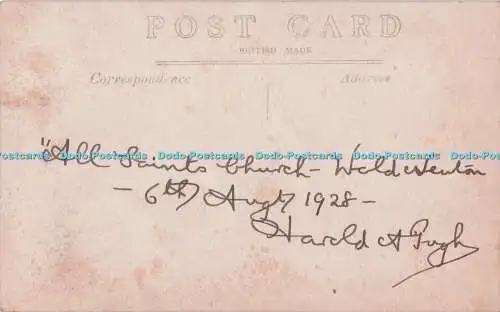 POST CARD
BRITISH MADE
Correspondence Address
"All Saints Church - Weld
Dodo-Postcards Dodo-Postcards Dodo-Postcards Dodo-Postcards Dodo-Postcards
- 6th Augt 1928 -
Harold A Pugh